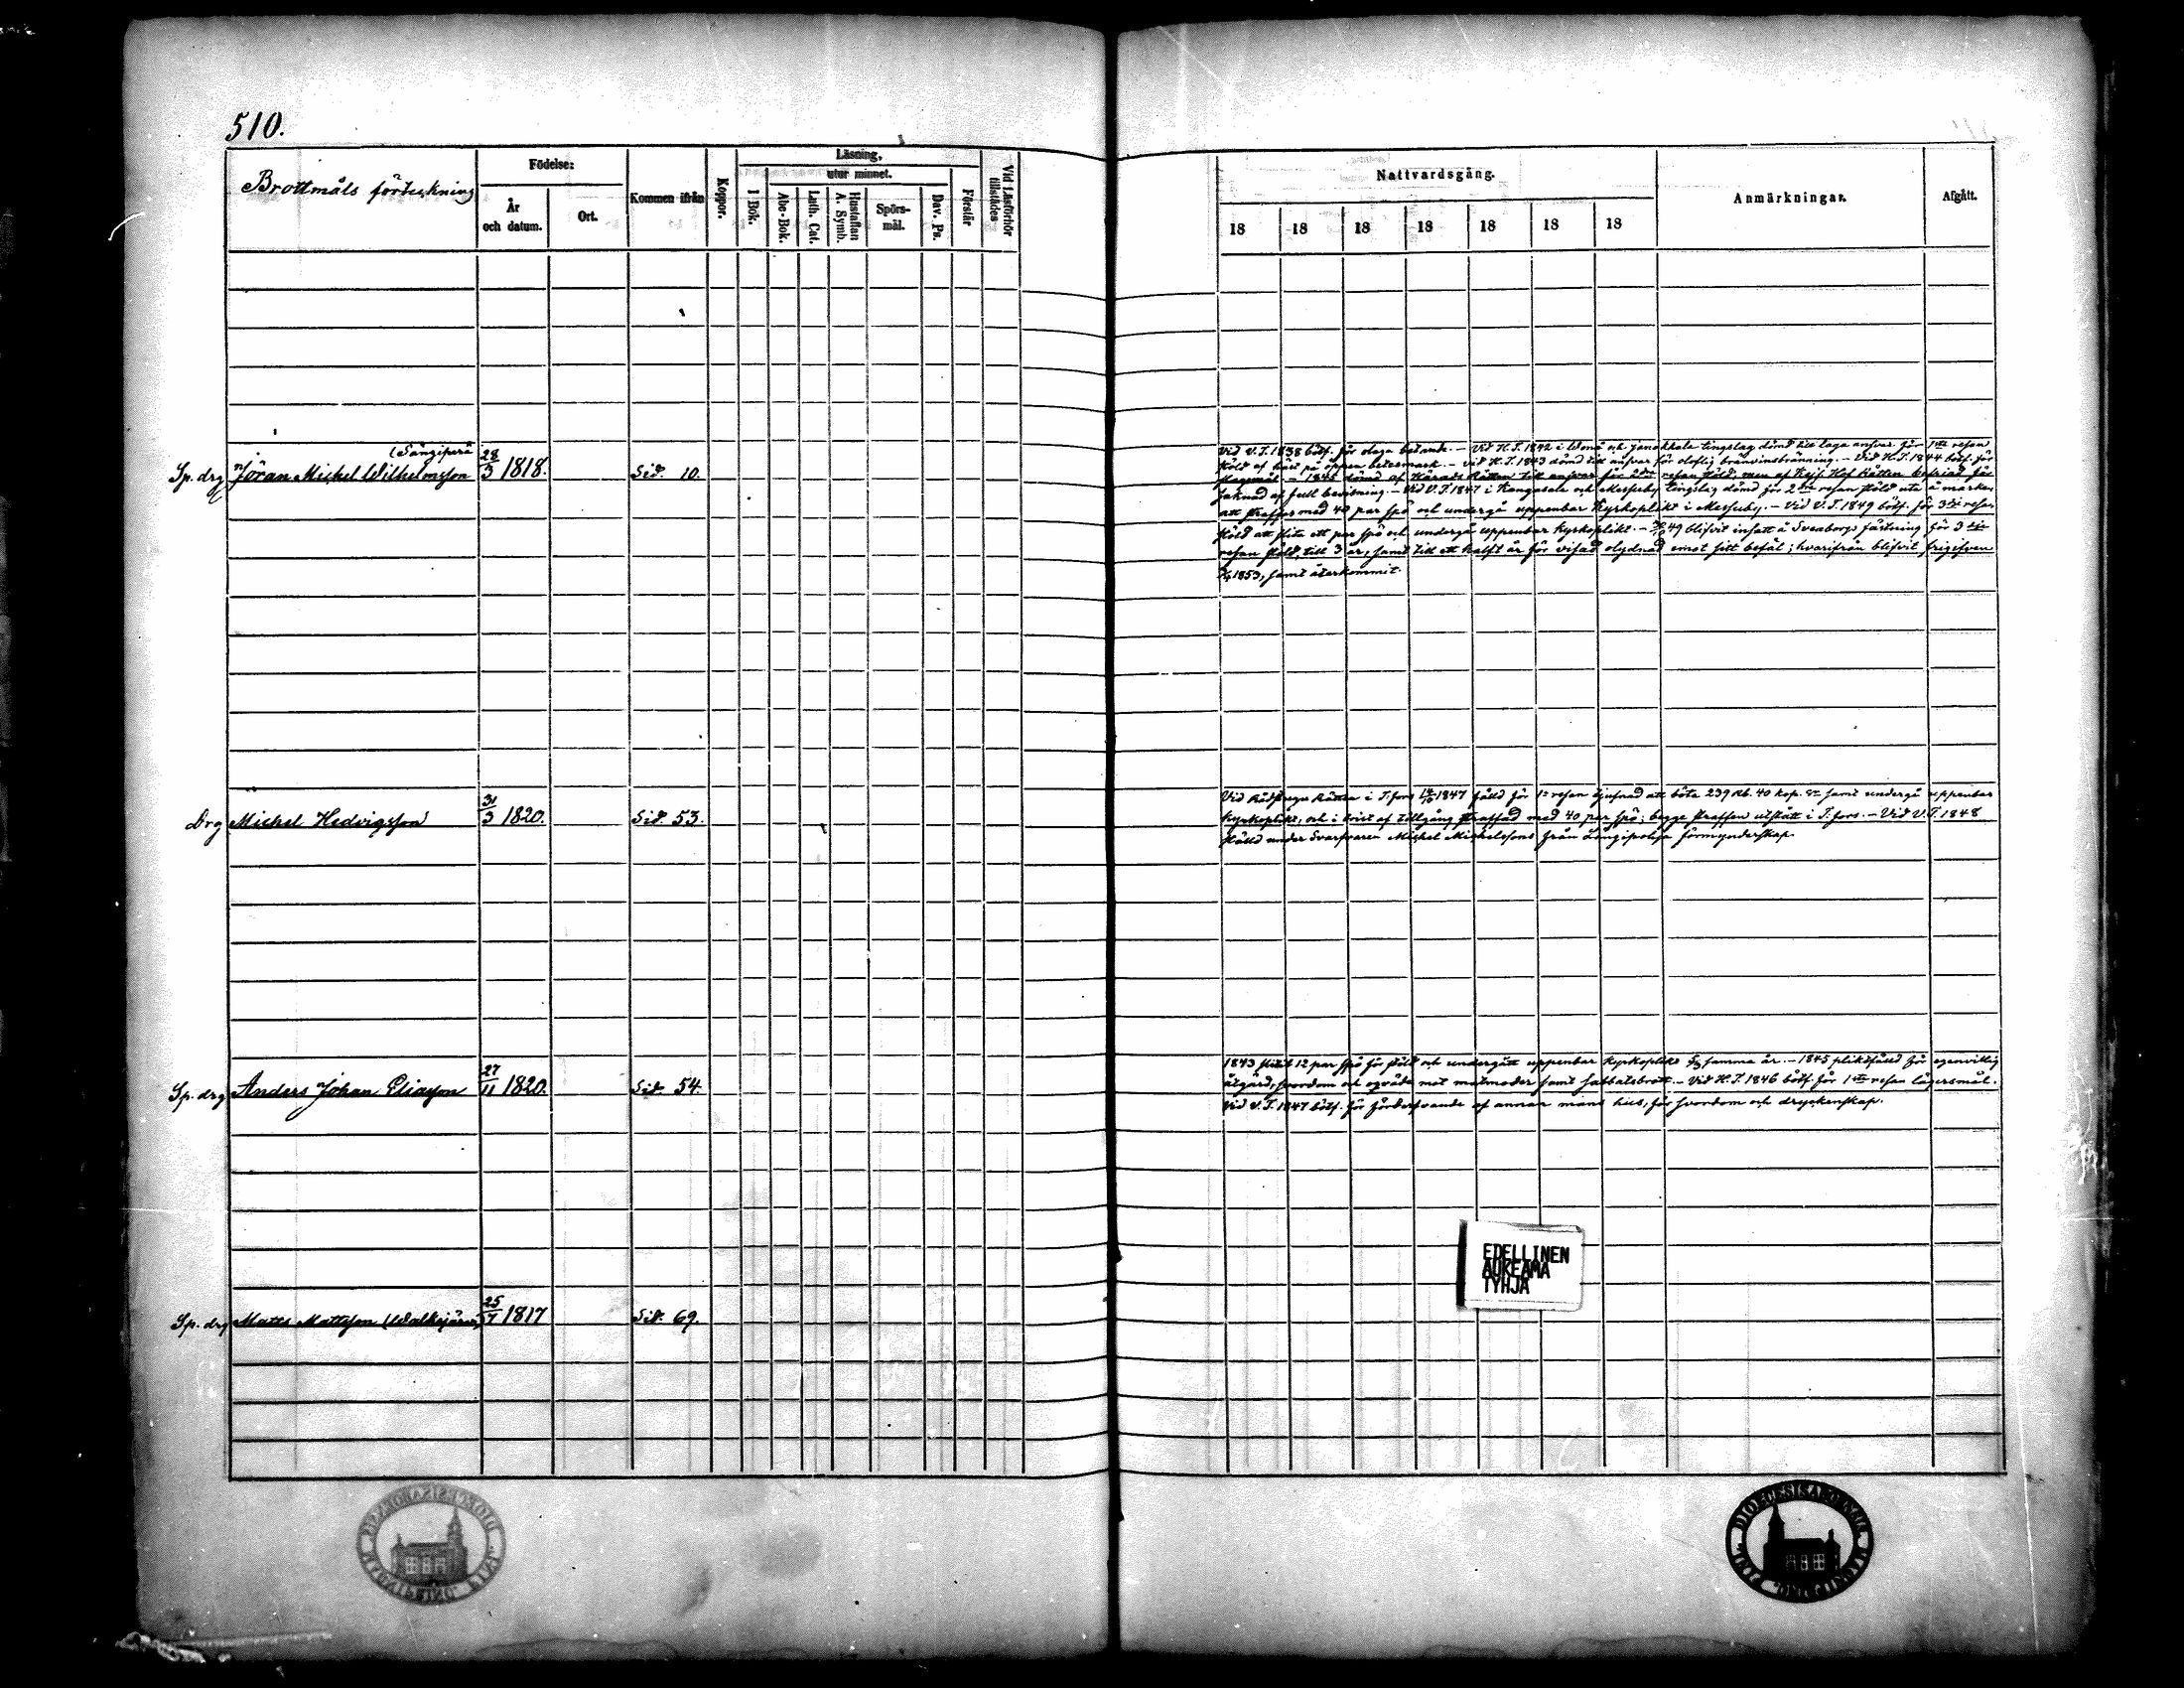 510.
Brottmåls förteckning
Födelse:
År och datum.
Ort.
Kommen ifrån
Koppor.
Läsning,
utur minnet.
I Bok.
Abc-Bok.
Luth. Cat.
Hustaflan A. Symb.
Spörs-mål.
Dav. Ps.
Förstår
Vid Läsförhör tillstädes
Nattvardsgång.
18 18 18 18 18 18 18
Anmärkningar.
Afgått.
Sp. drg Jöran Michel Wilhelmsson 28/3 1818. Sid. 10.
Vid V.T. 1838 bötf. för olaga betande. – Vid H.T. 1842 i och Janakkala tingslag dömd till laga ansvar för 1sta resan
stöld af häst på öppen betesmark. – Vid H.T. 1843 dömd till ansvar för oloflig bränvinsbränning. – Vid H.T. 1844 bötf. för
slagsmål – 1845 dömd af Härads Rätten till ansvar för resan stöld, men af Kejs. Hof Rätten befriad för
saknad af full bevisning. – Vid V.T. 1847 i Kangasala och Messuby tingslag dömd för 2dra resan stöld ute å marken
att straffas med 40 par spö och undergå uppenbar Kyrkoplikt i Messuby. – Vid V.T. 1849 bötf. för 3die resan
stöld att slita ett par spö och undergå uppenbar kyrkoplikt. – 49 blifvit insatt å Sveaborgs fästning för 3die
resan stöld, till 3 år, samt till ett halft år för visad olydnad emot sitt befäl; hvarifrån blifvit frigifven
1853, samt återkommit.
Drg Michel Hedvigsson 31/3 1820. Sid. 53.
Vid Rådstugu Rätten i T.fors 1847 fälld för 1a resan tjufnad att böta 239 Rb. 40 kop. Sr samt undergå uppenbar
kyrkoplikt, och i brist af tillgång straffad med 40 par spö; begge straffen utstått i T.fors. – Vid V.T. 1848
ställd under Svarfvaren Michel Michelssons från förmynderskap.
Sp. drg Anders Johan Eliasson 27/11 1820. Sid. 54.
1843 slitit 12 par spö för stöld och undergått uppenbar kyrkoplikt samma år. – 1845 pliktfälld för egenvillig
åtgärd, svordom och oqväde mot matmoder samt sabbatsbrott. – Vid H.T. 1846 bötf. för 1sta resan lägersmål.
Vid V.T. 1847 bötf. för af annan mans hus, för svordom och dryckenskap.
EDELLINEN
AUKEAMA
TYHJÄ
Sp. drg Matts Mattsson (Walkejärvi) 25/ 1817 Sid. 69.